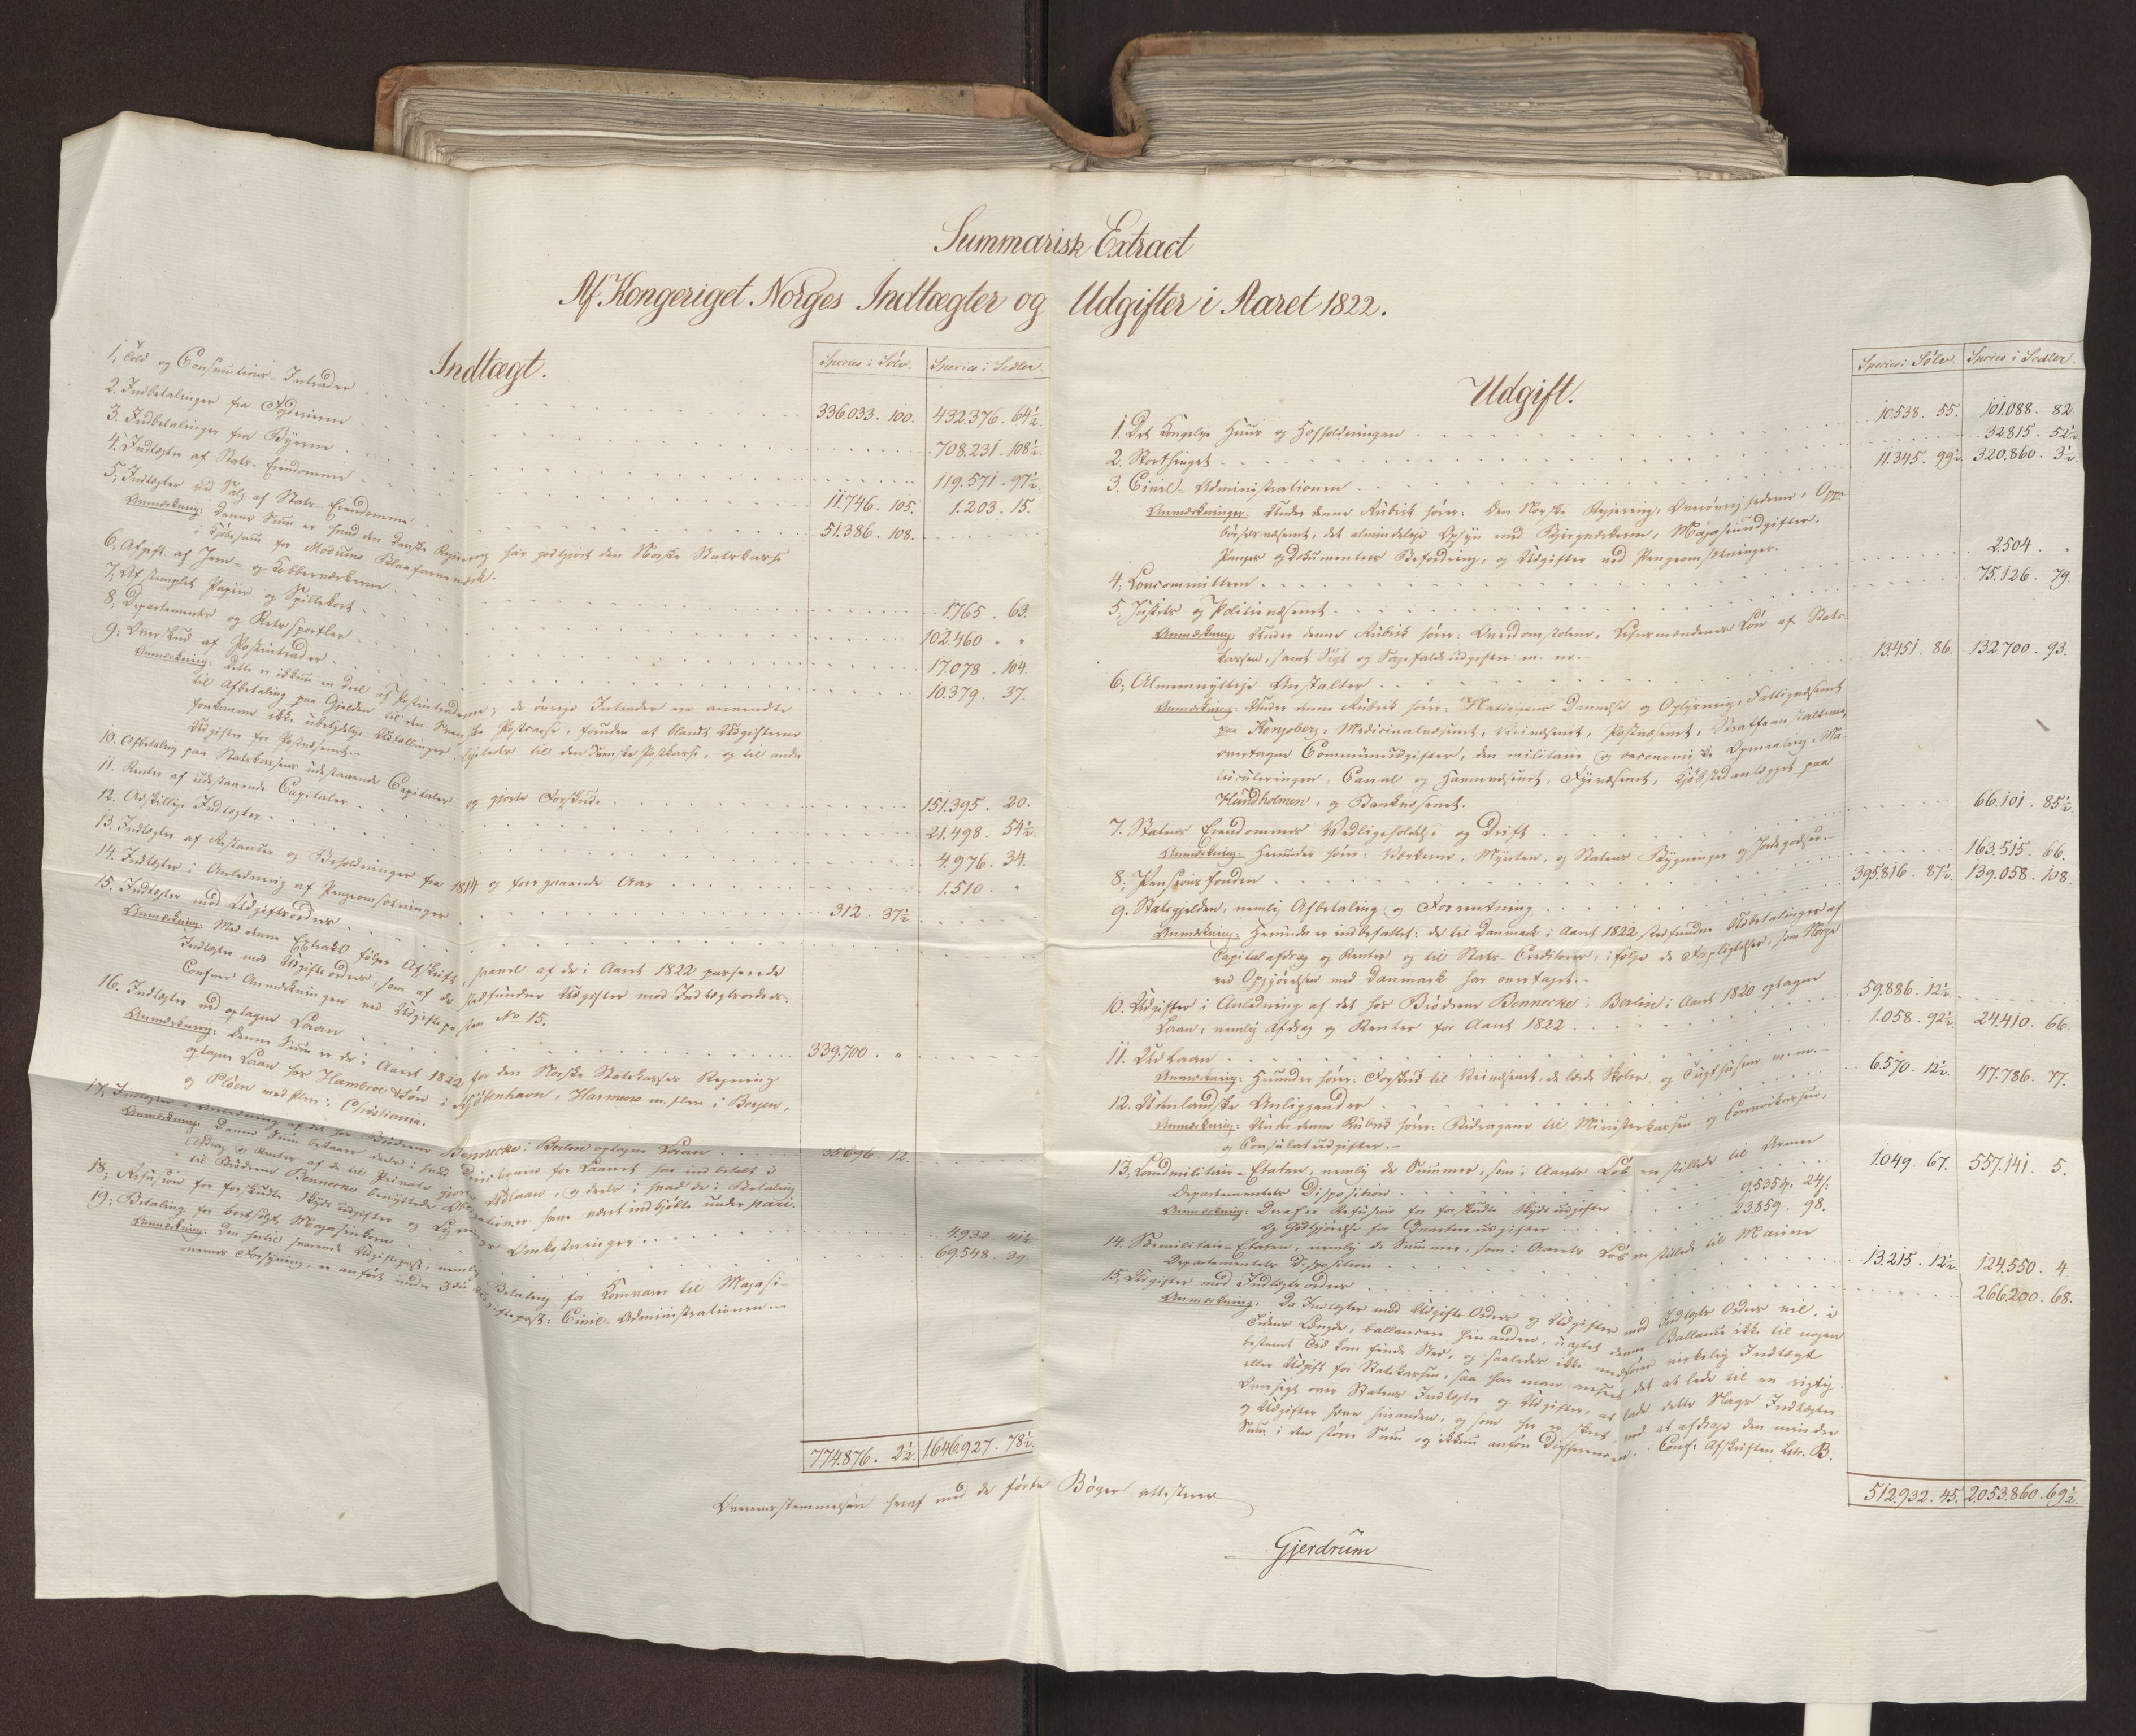 Summarisk Extract
Af Kongeriget Norges Indtægter og Udgifter i Aaret 1822.
Indtægt.
Species i Sølv. Species i Sedler.
1, Told og Consumtions Intrader 336.033. 100. 432.376. 64½.
2. Indbetalinger fra Fogderierne 708.231. 108½.
3. Indbetalinger fra Byerne 119.571. 97½.
4. Indtægter af Stats-Eiendomme 11.746. 105. 1.203. 15.
5, Indtægter ved Salg af Stats-Eiendomme 51.386. 108.
Anmærkning: Denne Sum er hvad den Danske Regiering har godtgjort den Norske Statskasse
i Kjøbesum for Modums Blaafarveværk.
6, Afgift af Jern- og Kobberværkerne 1.765. 63.
7, Af stemplet Papiir og Spillekort 102.460. "
8, Departements og Retssportler 17.078. 104.
9, Overskud af Postintrader 10.379. 37.
Anmærkning: Dette er ikkun en Deel af Postintraderne; de øvrige Intrader ere anvendte
til Afbetaling paa Gjelden til den Svenske Postcasse, foruden at blandt Udgifterne
forekomme ikke ubetydelige Udtællinger, ligeledes til den Svenske Postkasse, og til andre
Udgifter for Postvæsenet.
10. Afbetaling paa Statskassens udestaaende Capitaler og gjorte Forskud 151.395. 20.
11. Renter af udestaaende Capitaler 21.498. 54½.
12. Adskillige Indtægter 4.976. 34.
13. Indtægter af Restancer og Beholdninger fra 1814 og foregaaende Aar 1.510. "
14. Indtægter i Anledning af Pengeomsætninger 312. 37½
15. Indtægter mod Udgiftsordres
Anmærkning: Med denne Extract følger Afskrift, saavel af de i Aaret 1822 passerede
Indtægter mod Udgiftsordres, som af de stedfundne Udgifter mod Indtægtsordres.
Confer Anmærkningen ved Udgiftsposten No 15.
16. Indtægter ved optagne Laan 339.700. "
Anmærkning: Denne Sum er de i Aaret 1822 for den Norske Statskasses Regning
optagne Laan hos Hambroe & Søn i Kjøbenhavn, Harmens m. flere i Bergen,
og Pløen med flere i Christiania.
17, Indtægter i Anledning af det hos Brødrene Bennecke i Berlin optagne Laan 35.696. 12.
18, Refusion for forskudte Skydsudgifter og Omkostninger 4.932. 41½
19, Betaling for bortsolgt Magasinkorn 69.548. 39.
Anmærkning: Den hertil svarende Udgiftspost, nemlig Betaling for Kornvarer til Magasi-
nernes Forsyning, er anført under 3die Udgiftspost: Civil-Administrationen.
774.876. 2½. 1.646.927. 78½.
Udgift.
Species i Sølv. Species i Sedler.
1. Det Kongelige Huus og Hofholdningen 10.538. 55. 101.088. 82.
2. Storthinget 32.815. 52½
3. Civil-Administrationen 11.345. 99½. 320.860. 3½.
Anmærkninger: Under denne Rubrik hører: Den Norske Regiering, Overøvrighederne, Oppe-
børselsvæsenet, det almindelige Opsyn med Bjergværkerne, Magasinudgifter,
Penges og Dokumenters Befordring, og Udgifter ved Pengeomsætninger.
4, Lovcommitteen 2.504. "
5, Justits og Politievæsenet 75.126. 79.
Anmærkning: Under denne Rubrik hører: Overdomstolene, Sorenskrivernes Løn af Stats-
kassen, samt Sigt og Sagefaldsudgifter m. m.
6, Almeennyttige Anstalter 13.451. 86. 132.700. 93.
Anmærkning: Under denne Rubrik hører: Nationens Dannelse og Oplysning, Fattigvæsenet
paa Kongsberg, Medicinalvæsenet, Veivæsenet, Postvæsenet, Straffeanstalterne,
overtagne Communeudgifter, den militaire og oeconomiske Opmaaling, Ma-
triculeringen, Canal og Havnevæsenet, Fyrvæsenet, Kjøbstedanlægget paa
Hundholmen, og Bankvæsenet.
7. Statens Eiendommes Vedligeholdelse og Drift 66.101. 85½
Anmærkning: Herunder hører: Værkerne, Mynten, og Statens Bygninger og Jordegodser.
8, Pensionsfonden 163.515. 66.
9. Statsgjelden, nemlig Afbetaling og Forrentning 395.816. 87½. 139.058. 108.
Anmærkning: Herunder er indbefattet: de til Danmark i Aaret 1822 stedfundne Udbetalinger af
Capitalafdrag og Renter og til Stats-Creditorer, ifølge de Forpligtelser, som Norge
ved Opgjørelsen med Danmark har overtaget.
10. Udgifter i Anledning af det hos Brødrene Bennecke i Berlin i Aaret 1820 optagne
Laan, nemlig Afdrag og Renter for Aaret 1822 59.886. 12½
11. Udlaan 1.058. 92½. 24.410. 66.
Anmærkning: Herunder hører: Forskud til Veivæsenet, de lærde Skoler og Tugthusene m. m.
12. Udenlandske Anliggender 6.570. 12½. 47.786. 77.
Anmærkning: Under denne Rubrik hører: Bidragene til Ministerkassen og Convoikassen,
og Consulatudgifter.
13, Landmilitair-Etaten, nemlig de Summer, som i Aarets Løb ere stillede til Armee
Departementets Disposition 1.049. 67. 557.141. 5.
Anmærkning: Derefter Refusion for forskudte Skydsudgifter 9.535. 24.
og Godtgjørelse for Qvarteerudgifter 23.859. 98.
14. Søemilitair-Etaten, nemlig de Summer, som i Aarets Løb ere stillede til Marine
Departementets Disposition 13.215. 12½. 124.550. 4.
15, Udgifter mod Indtægtsordres 266.200. 68.
Anmærkning: Da Indtægter mod Udgifts Ordres og Udgifter mod Indtægts Ordres vil, i
Tidens Længde, ballancere hinanden, uagtet denne Ballance ikke til nogen
bestemt Tid kan finde Sted, og saaledes ikke medfører virkelig Indtægt
eller Udgift for Statskassen, saa har man anseet det at lede til en rigtig
Oversigt over Statens Indtægter og Udgifter, at lade dette Slags Indtægter
og Udgifter hæve hinanden, og som her er skeet, ved at afdrage den mindre
Sum i den større Sum og ikkun anføre Differencen. Conf: Afskriften Litr. B.
512.932. 45. 2.053.860. 69½.
Overensstemmelsen heraf med de førte Bøger attesterer
Gjerdrum